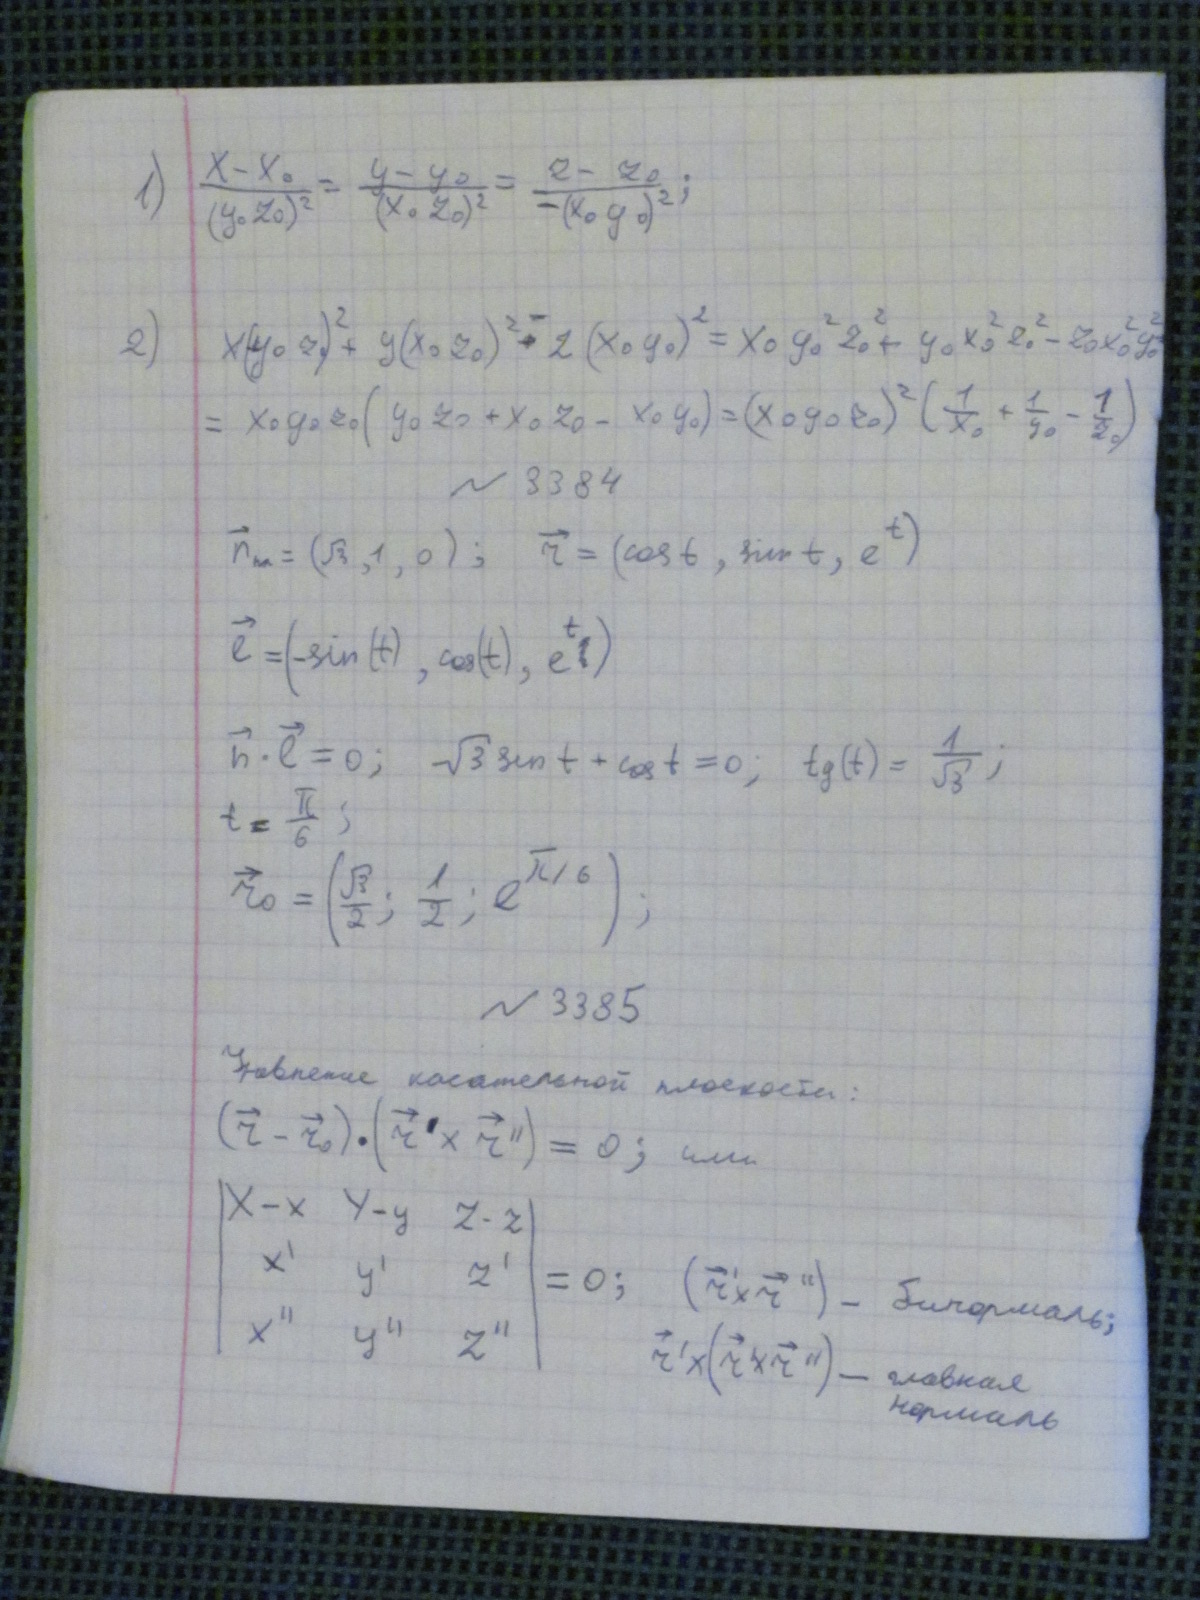 1) (x-x₀)/(y₀z₀)² = (y-y₀)/(x₀z₀)² = (z-z₀)/-(x₀y₀)²;
2) x(y₀z₀)² + y(x₀z₀)² - z(x₀y₀)² = x₀y₀²z₀² + y₀x₀²z₀² - z₀x₀²y₀²
= x₀y₀z₀(y₀z₀ + x₀z₀ - x₀y₀) = (x₀y₀z₀)²(1/x₀ + 1/y₀ - 1/z₀)
~ 3384
n⃗пл = (√3, 1, 0); r⃗ = (cos t, sin t, e^t)
l⃗ = (-sin(t), cos(t), e^t)
n⃗·l⃗ = 0; -√3 sin t + cos t = 0; tg(t) = 1/√3;
t = π/6;
r⃗₀ = (√3/2; 1/2; e^π/6);
~ 3385
Уравнение касательной плоскости:
(r⃗ - r⃗₀)·(r⃗' × r⃗'') = 0; или
|X-x Y-y Z-z|
|x' y' z'| = 0; (r⃗' × r⃗'') - бинормаль;
|x'' y'' z''| r⃗' × (r⃗' × r⃗'') - главная
нормаль